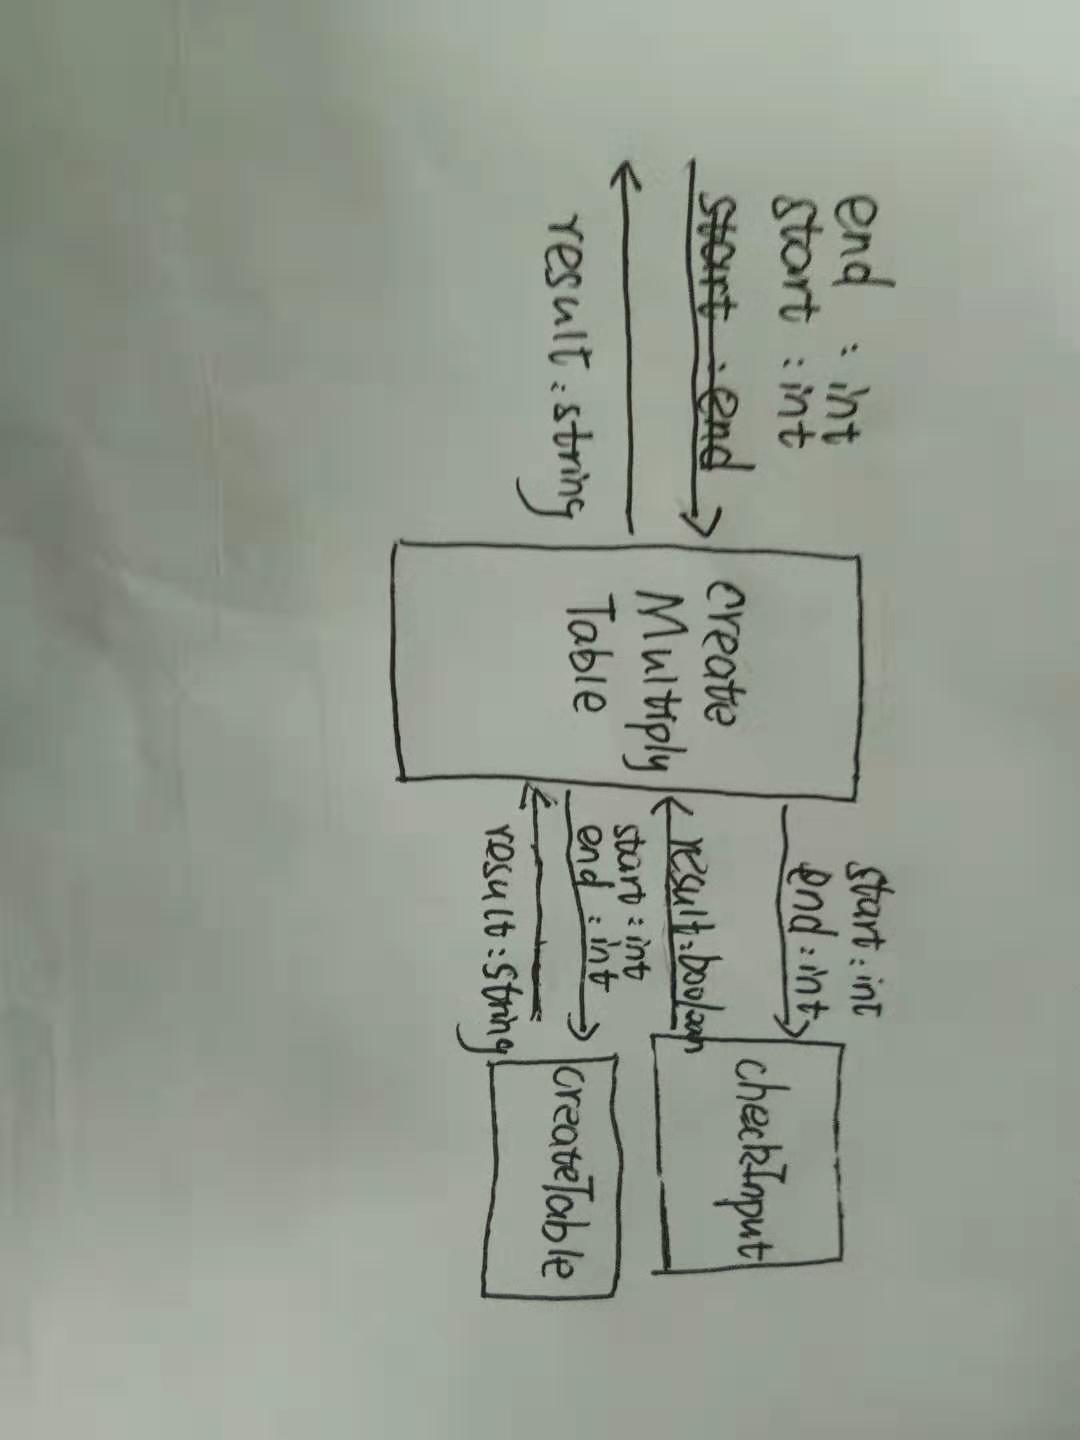 end : int
start : int
start : end
result : string
create
Multiply
Table
start : int
end : int
result : boolean
start : int
end : int
result : string
checkInput
createTable